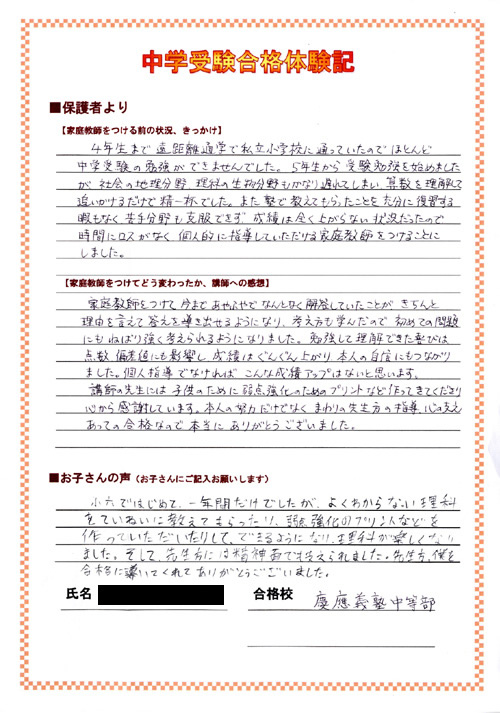 中学受験合格体験記
■保護者より
【家庭教師をつける前の状況、きっかけ】
4年生まで遠距離通学で私立小学校に通っていたのでほとんど
中学受験の勉強ができませんでした。5年生から受験勉強を始めました
が社会の地理分野、理科の生物分野もかなり遅れてしまい、算数を理解して
追いかけるだけで精一杯でした。また塾で教えてもらったことを充分に復習する
暇もなく苦手分野も克服できず成績は全く上がらない状況だったので
時間にロスがなく個人的に指導していただける家庭教師をつけることに
しました。
【家庭教師をつけてどう変わったか、講師への感想】
家庭教師をつけて今まであやふやでなんとなく解答していたことがきちんと
理由を言えて答えを導き出せるようになり、考え方も学んだので初めての問題
にもねばり強く考えられるようになりました。勉強して理解できた喜びは
点数、偏差値にも影響し成績はぐんぐん上がり本人の自信にもつながり
ました。個人指導でなければこんな成績アップはないと思います。
講師の先生には子供のために弱点強化のためのプリントなど作ってきてくださり
心から感謝しています。本人の努力だけでなくまわりの先生方の指導、心の支え
あっての合格なので本当にありがとうございました。
■お子さんの声（お子さんにご記入お願いします）
小六ではじめて、一年間だけでしたが、よくわからない理科
をていねいに教えてもらったり、弱点強化のプリントなどを
作っていただいたりして、できるようになり、理科が楽しくなり
ました。そして、先生方には精神面でも支えられました。先生方、僕を
合格に導いてくれてありがとうございました。
氏名
合格校 慶應義塾中等部